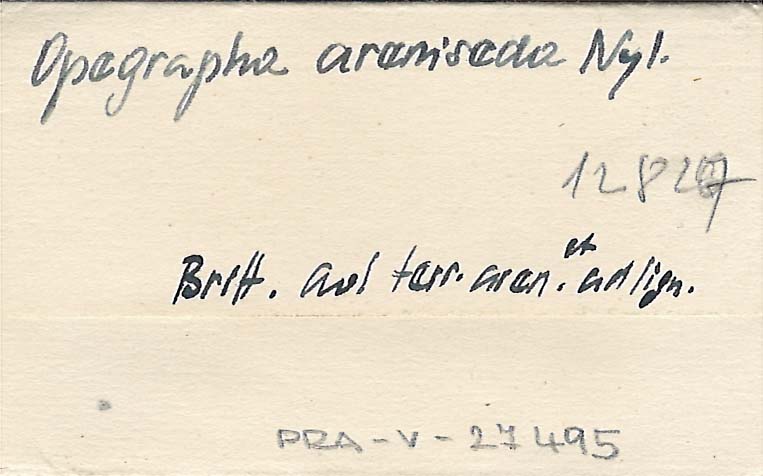 Opegrapha areniseda Nyl.
Britt. ad terr. aren. et ad lign.
PRA-V-27495